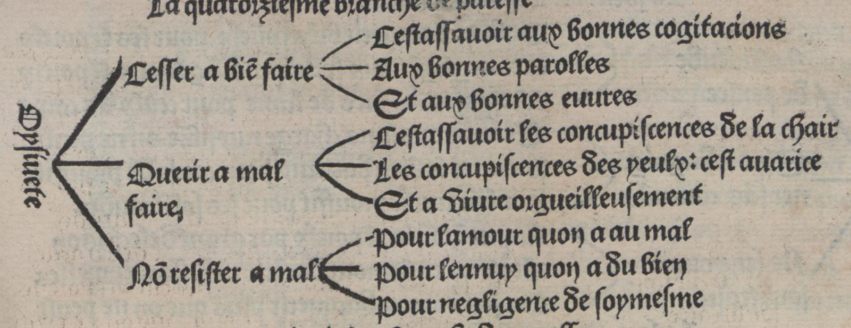 La quatorziesme branche de paresse
Oysiuete
Cesser a biē faire
Cestassauoir aux bonnes cogitacions
Aux bonnes parolles
Et aux bonnes euures
Querir a mal
faire,
Cestassauoir les concupiscences de la chair
Les concupiscences des yeulx: cest auarice
Et a viure orgueilleusement
Nō resister a mal
Pour lamour quon a au mal
Pour lennuy quon a du bien
Pour negligence de soymesme